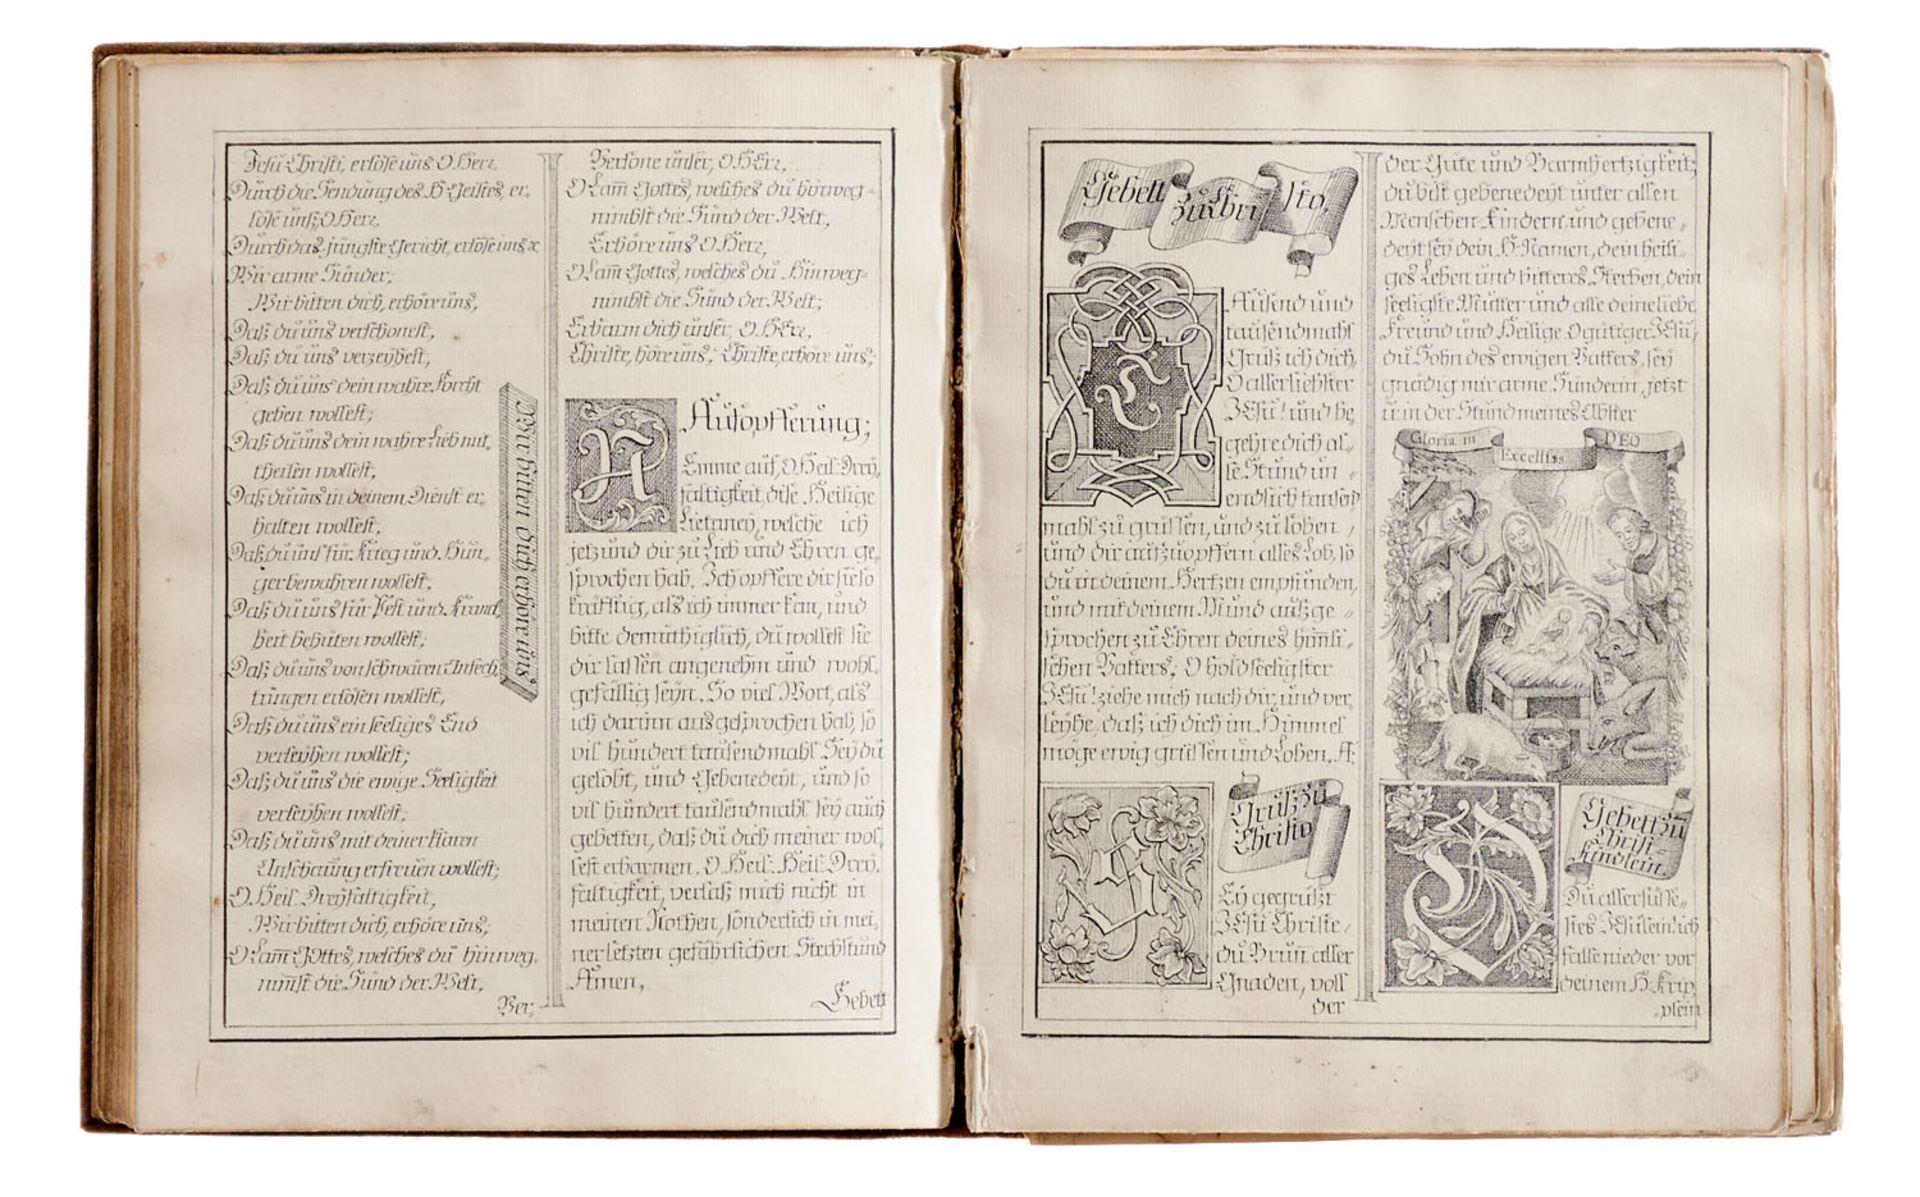 Jesu Christi, erlöse uns O Herr,
Durch die Sendung des H Geistes, er-
löse uns, O Herr,
Durch das jüngste Gericht, erlöse uns ꝛc
Wir arme Sünder,
Wir bitten dich, erhöre uns,
Daß du uns verschonest,
Daß du uns verzeyhest,
Daß du uns dein wahre Forcht
geben wollest;
Daß du uns dein wahre Lieb mit-
theilen wollest,
Daß du uns in deinem Dienst er-
halten wollest,
Daß du uns für Krieg und Hun-
ger bewahren wollest,
Daß du uns für Pest und Kranck-
heit behüten wollest;
Daß du uns von schwären Anfech-
tungen erlösen wollest,
Daß du uns ein seeliges End
verleyhen wollest;
Daß du uns die ewige Seeligkeit
verleyhen wollest;
Daß du uns mit deiner klaren
Anschauung erfreuen wollest;
O Heil. Dreyfaltigkeit,
Wir bitten dich, erhöre uns,
O Lam̅ Gottes, welches du hinweg-
nim̅st die Sünd der Welt,
Ver-
Wir bitten dich erhöre uns
Verschone unser, O HErr,
O Lam̅ Gottes, welches du hinweg-
nimbst die Sünd der Welt,
Erhöre uns O Herr,
O Lam̅ Gottes, welches du Hinweg-
nimbst die Sünd der Welt;
Erbarm dich unser, O HErr,
Christe, höre uns; Christe, erhöre uns;
Aufopfferung;
N
Emme auf, O Heil: Drey-
faltigkeit, dise Heilige
Lietaney, welche ich
jetzund dir zu Lieb und Ehren ge-
sprochen hab, Ich opffere dir sie so
kräfftig, als ich immer kan, und
bitte demüthiglich, du wollest sie
dir lassen angenehm und wohl-
gefällig seyn. So viel Wort, als
ich darinn ausgesprochen hab, so
vil hundert tausendmahl Sey du
gelobt, und Gebenedeyt, und so
vil hundert tausendmahl sey auch
gebetten, daß du dich meiner wol-
lest erbarmen. O Heil: Heil: Drey-
faltigkeit, verlaß mich nicht in
meinen Nothen, sonderlich in mei-
ner letzten gefährlichen Sterbstund
Amen,
Gebett
Gebett zu Christo,
T
Ausend und
tausendmahl
Grüß ich dich,
O allerliebster
JEsu! und be-
gehre dich al-
le Stund un-
endlich tausend
mahl zu grüssen, und zu loben,
und dir aufzuopffern alles Lob, so
du in deinem Hertzen empfunden,
und mit deinem Mund außge-
sprochen zu Ehren deines himli-
schen Vatters; O holdseeligster
JEsu! ziehe mich nach dir, und ver-
leyhe, daß ich dich im Himmel
möge ewig grüssen und Loben. A:
Gruß zu
Christo
S
Ey gegrüßt
JEsu Christe,
du Brun̅ aller
Gnaden, voll
der
der Güte und Barmhertzigkeit;
du bist gebenedeyt unter allen
Menschen Kindern, und gebene-
deyt sey dein H: Namen, dein heili-
ges Leben und bitteres Sterben, dein
seeligste Mutter und alle deine liebe
Freund und Heilige. O gütiger JEsu,
du Sohn des ewigen Vatters, sey
gnädig mir arme Sünderin, jetzt
u in der Stund meines Abster
Gloria in Excellsis DEO
Gebett zu̅
Christ-
kindlein.
D
Du allersüsse-
stes JEsulein! ich
falle nieder vor
deinem H: Krip-
plein